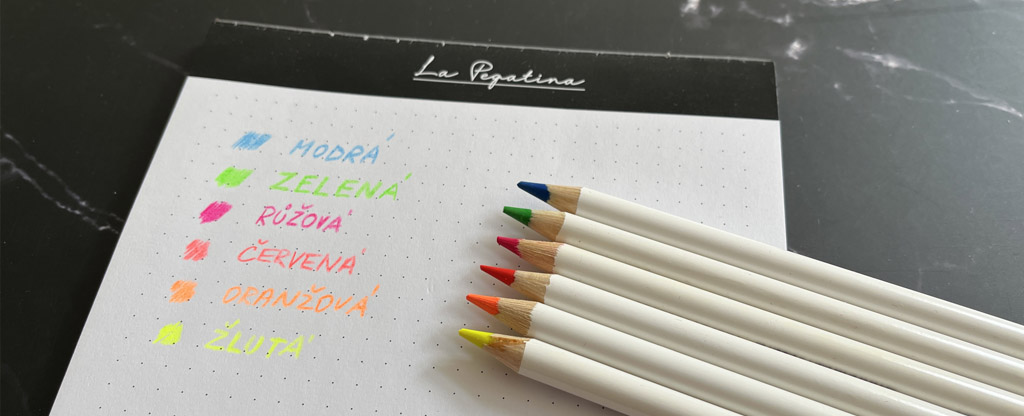 La Pegatina
MODRÁ
ZELENÁ
RŮŽOVÁ
ČERVENÁ
ORANŽOVÁ
ŽLUTÁ